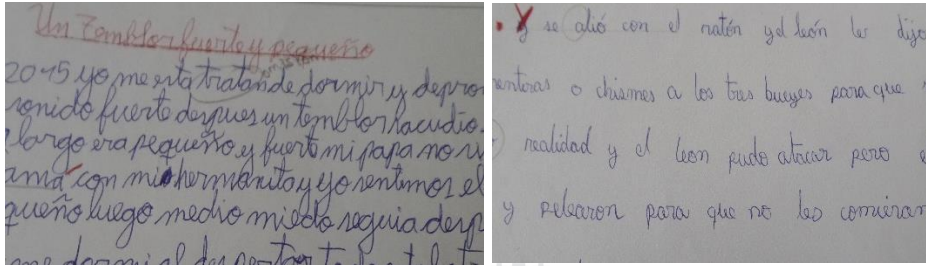 Un Temblor fuerte y pequeño
2015 yo me esta tratando dormir y depro
sonido fuerte despues un temblor sacudio
largo era pequeño y fuerte mi papa no
ama con mi hermanita y yo sentimos el
queño luego me dio miedo seguia desp
me dormi al despertar
Y se alió con el ratón y el león les dijo
mentiras o chismes a los tres bueyes para que
realidad y el leon pudo atacar pero
y pelearon para que no los comieran